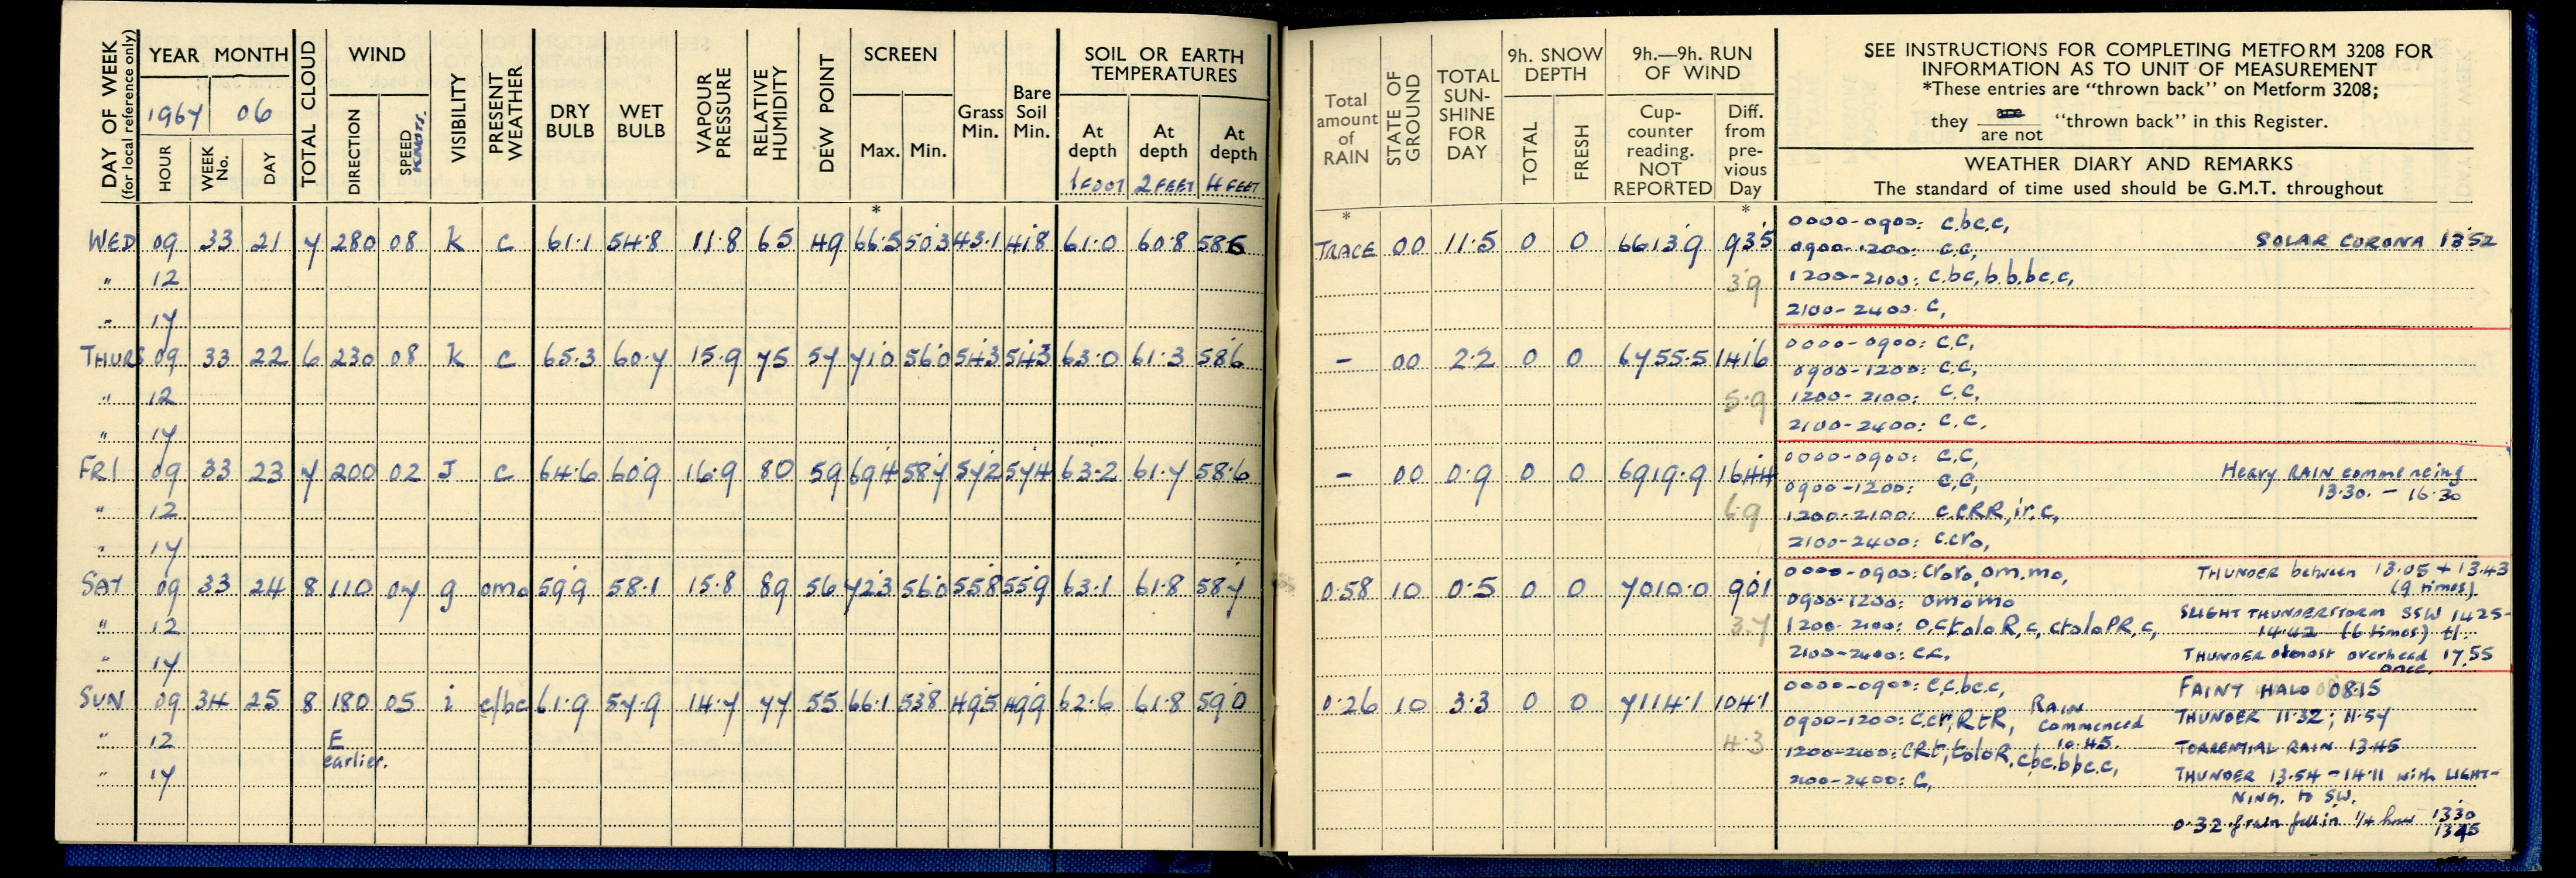 DAY OF WEEK (for local reference only) YEAR MONTH TOTAL CLOUD WIND VISIBILITY PRESENT WEATHER DRY BULB WET BULB VAPOUR PRESSURE RELATIVE HUMIDITY DEW POINT SCREEN Grass Min. Bare Soil Min. SOIL OR EARTH TEMPERATURES
1967 06
HOUR WEEK No. DAY DIRECTION SPEED KNOTS. Max. Min. At depth At depth At depth
1 FOOT 2 FEET 4 FEET
*
WED 09 33 21 7 280 08 k c 61.1 54.8 11.8 65 49 66.5 50.3 43.1 41.8 61.0 60.8 58.6
" 12
" 17
THURS 09 33 22 6 230 08 k c 65.3 60.7 15.9 75 57 71.0 56.0 54.3 54.3 63.0 61.3 58.6
" 12
" 17
FRI 09 33 23 7 200 02 J c 64.6 60.9 16.9 80 59 69.4 58.7 57.2 57.4 63.2 61.7 58.6
" 12
" 17
SAT 09 33 24 8 110 07 g omo 59.9 58.1 15.8 89 56 72.3 56.0 55.8 55.9 63.1 61.8 58.7
" 12
" 17
SUN 09 34 25 8 180 05 i c/bc 61.9 57.9 14.7 77 55 66.1 53.8 49.5 49.9 62.6 61.8 59.0
" 12 E
earlier.
" 17
Total amount of RAIN STATE OF GROUND TOTAL SUN- SHINE FOR DAY 9h. SNOW DEPTH 9h.—9h. RUN OF WIND
TOTAL FRESH Cup- counter reading. NOT REPORTED Diff. from pre- vious Day
SEE INSTRUCTIONS FOR COMPLETING METFORM 3208 FOR
INFORMATION AS TO UNIT OF MEASUREMENT
*These entries are "thrown back" on Metform 3208;
they are not "thrown back" in this Register.
WEATHER DIARY AND REMARKS
The standard of time used should be G.M.T. throughout
* *
TRACE 00 11.5 0 0 6613.9 93.5
3.9
0000-0900: c.bc.c,
0900-1200: c.c, SOLAR CORONA 13.52
1200-2100: c.bc, b.b.bc.c,
2100-2400. C,
- 00 2.2 0 0 6755.5 141.6
5.9
0000-0900: c.c,
0900-1200: c.c,
1200-2100: c.c,
2100-2400: c.c,
- 00 0.9 0 0 6919.9 164.4
6.9
0000-0900: c.c,
0900-1200: c.c, Heavy RAIN commencing
13.30. - 16.30
1200-2100: c.cRR, ir.c,
2100-2400: c.cro,
0.58 10 0.5 0 0 7010.0 90.1
3.7
0000-0900: croro, om.mo, THUNDER between 13.05 + 13.43
(9 times).
0900-1200: omomo
SLIGHT THUNDERSTORM SSW 1425-
1200-2100: o,ctoloR, c, ctoloPR, c, 14.42 (6 times) tl.
2100-2400: c.c, THUNDER almost overhead 17.55
once.
0.26 10 3.3 0 0 7114.1 104.1
4.3
0000-0900: c.c.bc.c, FAINT HALO 08.15
RAIN commenced 10.45.
0900-1200: c.cr, RtR, THUNDER 11.32; 11.54
1200-2100: cRt, toloR, cbc.bbc.c, TORRENTIAL RAIN 13.45
2100-2400: C, THUNDER 13.54 - 14.11 with LIGHT-
NING. to SW.
0.32 of rain fell in 1/4 hour 13.30
13.45